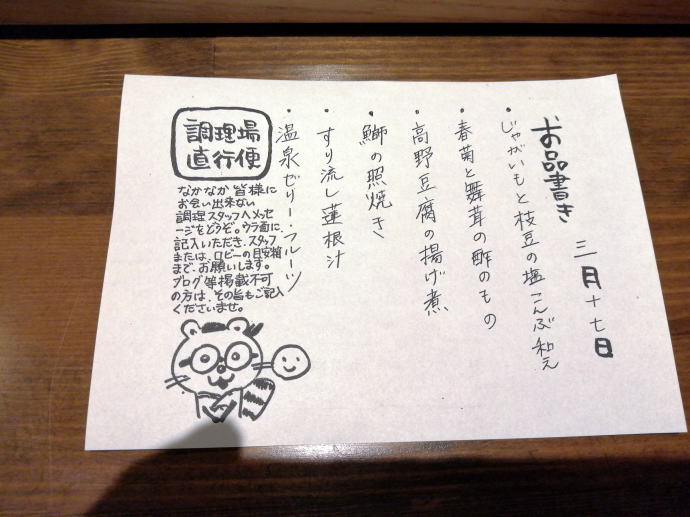 お品書き
三月十七日
・じゃがいもと枝豆の塩こんぶ和え
・春菊と舞茸の酢のもの
・高野豆腐の揚げ煮
・鰤の照焼き
・すり流し蓮根汁
・温泉ゼリー・フルーツ
調理場
直行便
なかなか皆様に
お会い出来ない
調理スタッフへメッセ
ージをどうぞ。ウラ面に
記入いただき、スタッフ
または、ロビーの目安箱
まで、お願いします。
ブログ等掲載不可
の方は、その旨もご記入
くださいませ。